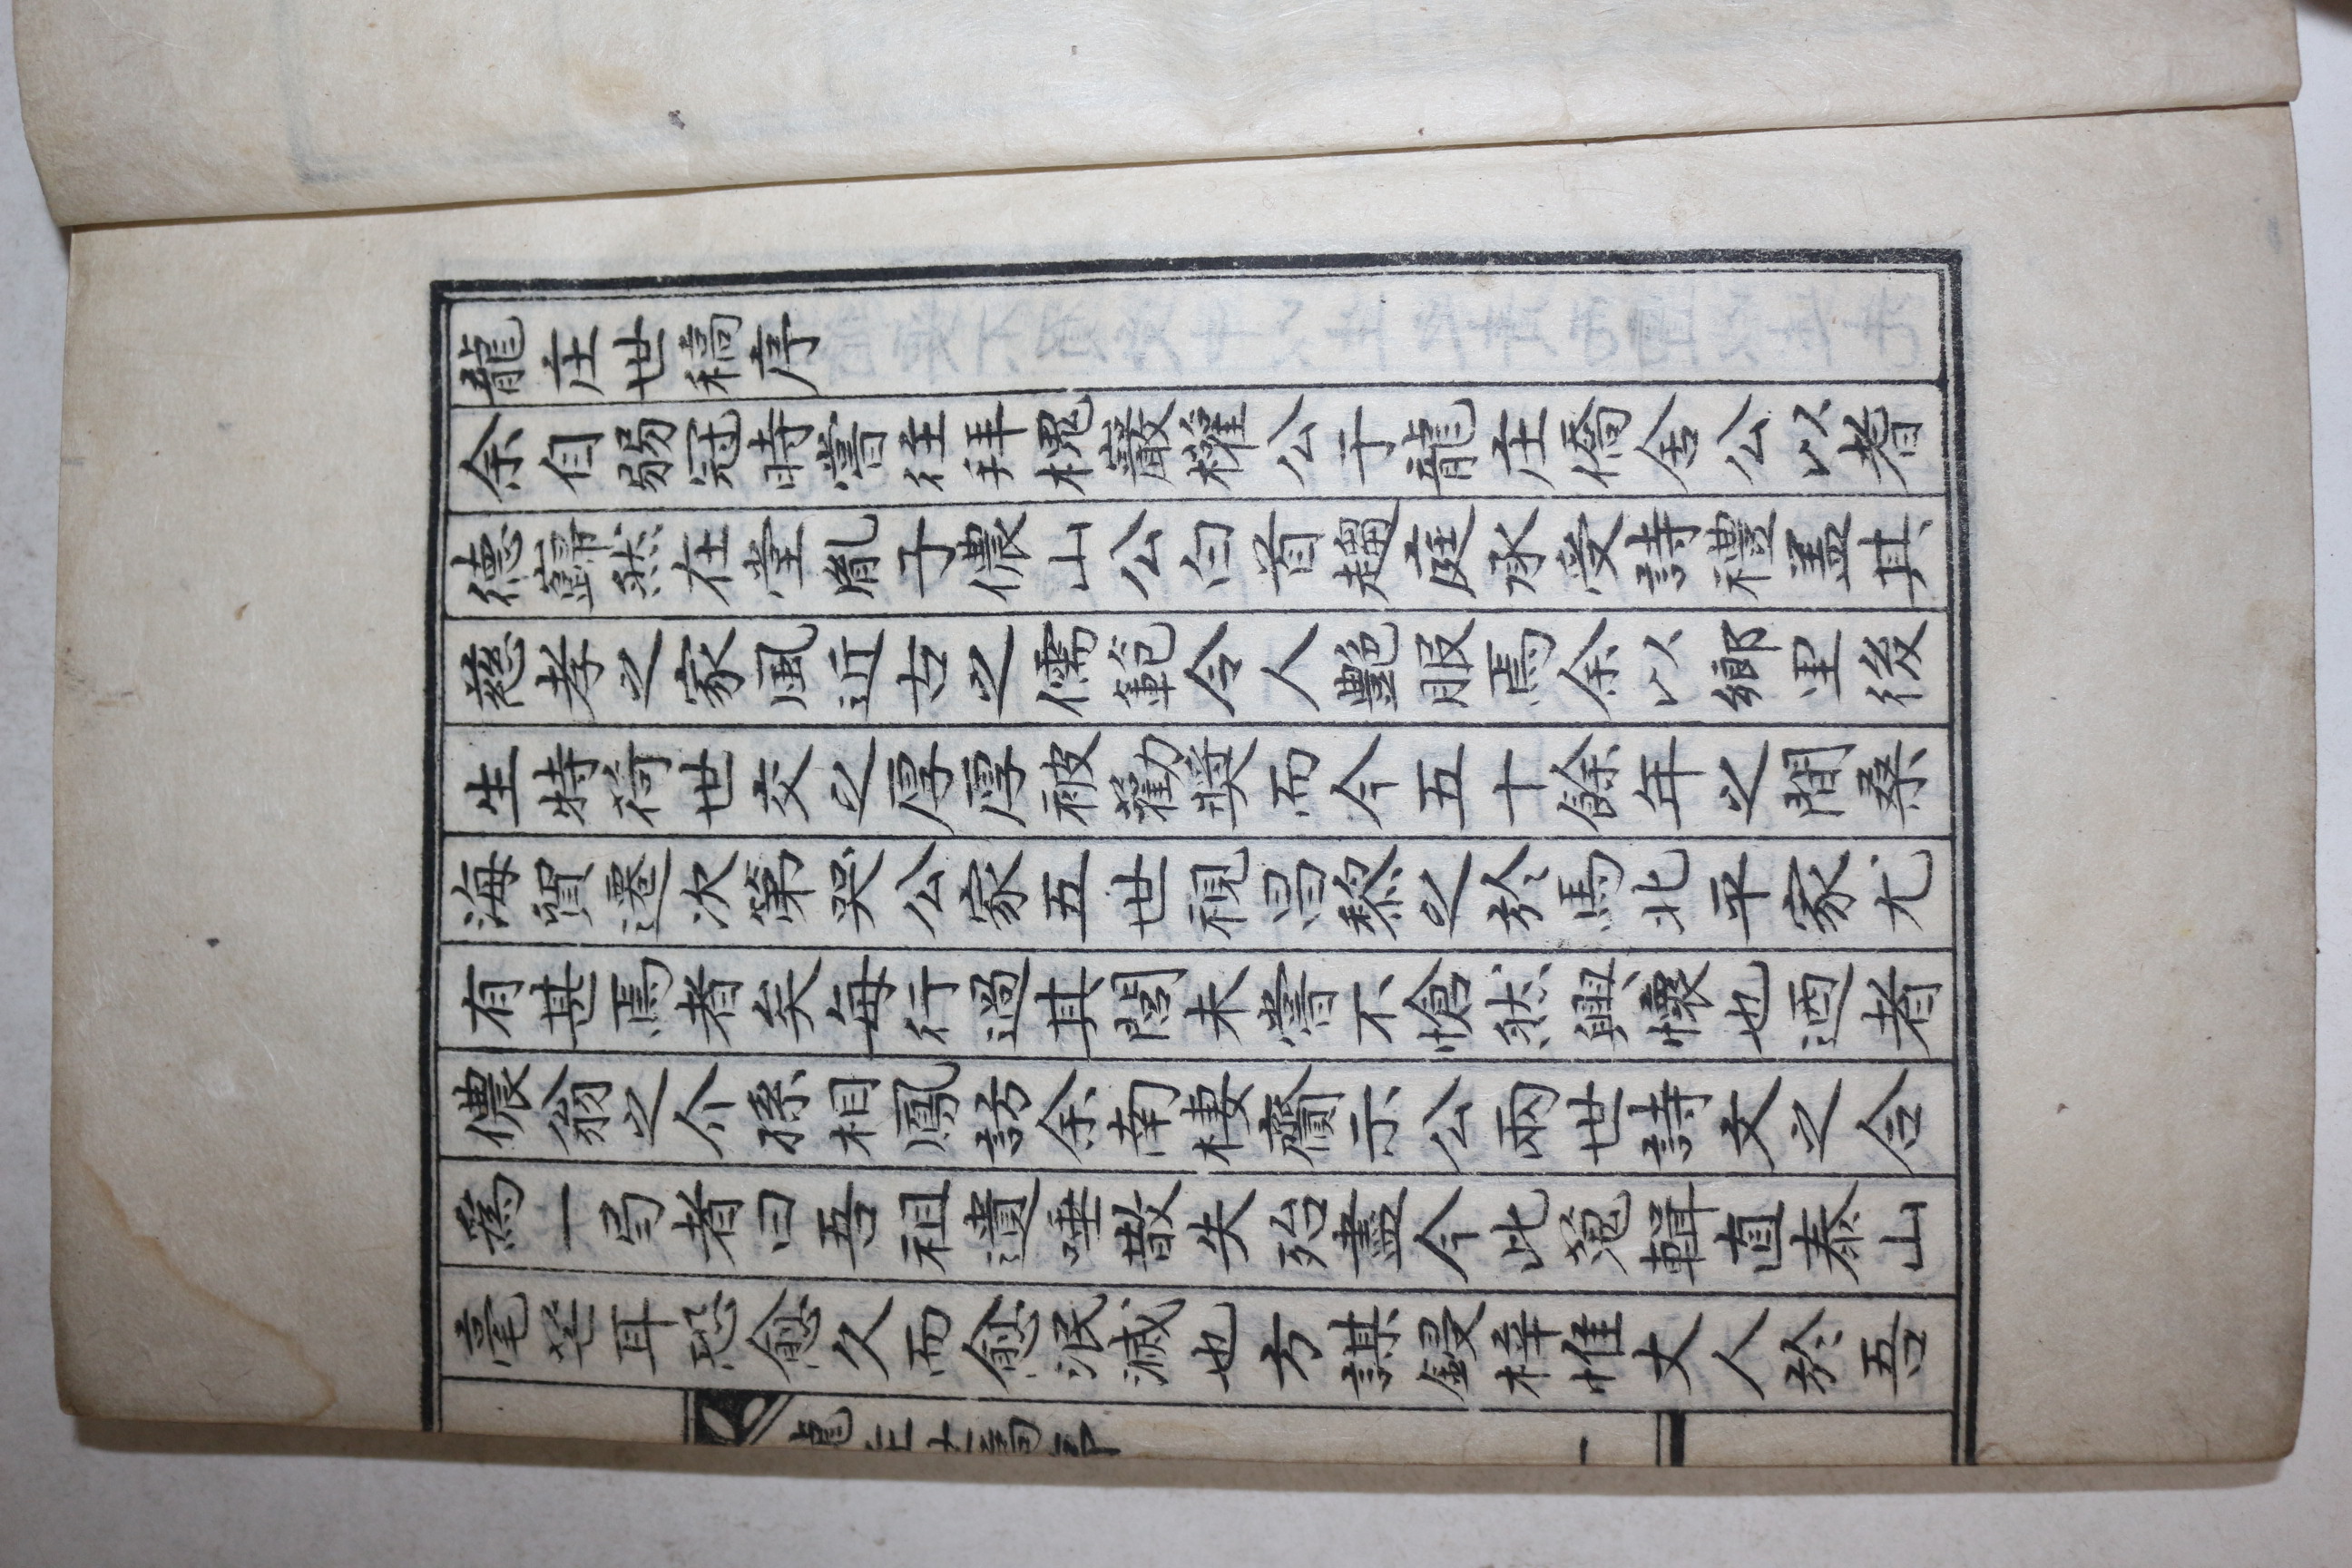 龍庄世稿序
余自弱冠時嘗往拜槐巖權公于龍庄僑舍公以耆
德巋然在堂胤子儂山公白首趨庭承受詩禮盖其
慈孝之家風近古之儒範令人艶服焉余以鄉里後
生特荷世交之厚厚被勸奬而今五十餘年之間桑
海貿遷次第哭公家五世視昌黎之於馬北平家尤
有甚焉者矣每行過其閭未嘗不愴然興懷也迺者
儂翁之介孫相鳳訪余南棲齎示公兩世詩文之合
爲一弓者曰吾祖遺唾散失殆盡今此蒐輯直泰山
毫芒耳恐愈久而愈泯滅也方謀鋟梓惟丈人於吾
龍庄世稿序
一